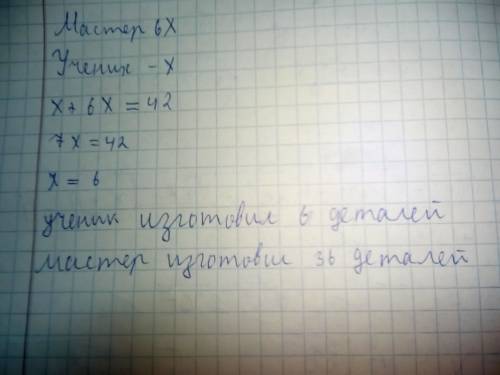 Мастер 6X
Ученик - X
X + 6X = 42
7X = 42
X = 6
ученик изготовил 6 деталей
мастер изготовил 36 деталей